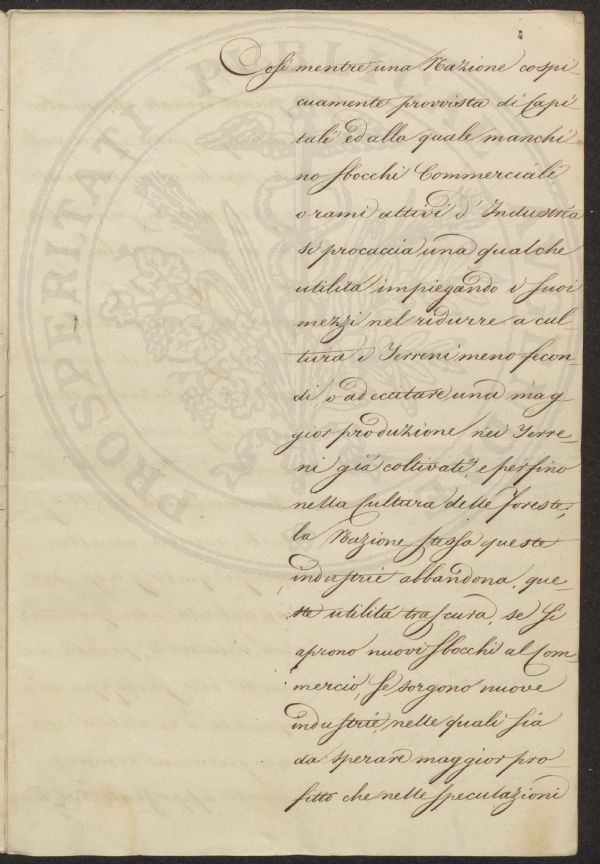 Così mentre una Nazione cospi-
cuamente provvista di Capi-
tali ed alla quale manchi
no sbocchi Commerciali
o rami attivi d'Industria
si procaccia una qualche
utilità impiegando i suoi
mezzi nel ridurre a cul
tura i Terreni meno fecon
di o ad eccitare una mag
gior produzione nei Terre-
ni già coltivati, e perfino
nella Cultura delle foreste,
la Nazione stessa queste
industrie abbandona, que-
ste utilità trascura, se si
aprono nuovi sbocchi al Com-
mercio, se sorgono nuove
industrie, nelle quali sia
da sperare maggior pro
fitto che nelle speculazioni
PROSPERITATI PUBLICAE